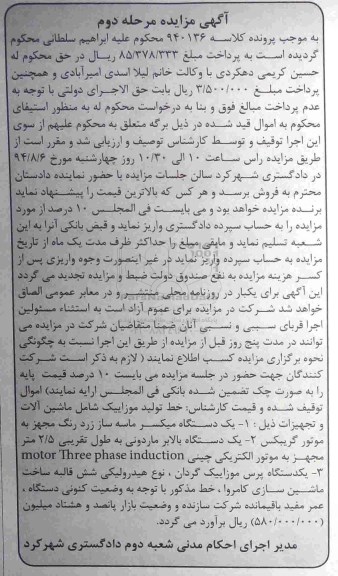 آگهی مزایده مرحله دوم
به موجب پرونده کلاسه ۹۴۰۱۳۶ محکوم علیه ابراهیم سلطانی محکوم
گردیده است به پرداخت مبلغ ۸۵/۳۷۸/۳۳۳ ریال در حق محکوم له
حسین کریمی دهکردی با وکالت خانم لیلا اسدی امیرآبادی و همچنین
پرداخت مبلغ ۳/۵۰۰/۰۰۰ ریال بابت حق الاجرای دولتی با توجه به
عدم پرداخت مبالغ فوق و بنا به درخواست محکوم له به منظور استیفای
محکوم به اموال قید شده در ذیل برگه متعلق به محکوم علیهم از سوی
این اجرا توقیف و توسط کارشناس توصیف و ارزیابی شد و مقرر است از
طریق مزایده راس ساعت ۱۰ الی ۱۰/۳۰ روز چهارشنبه مورخ ۹۴/۸/۶
در دادگستری شهرکرد سالن جلسات مزایده با حضور نماینده دادستان
محترم به فروش برسد و هر کس که بالاترین قیمت را پیشنهاد نماید
برنده مزایده خواهد بود و می بایست فی المجلس ۱۰ درصد از مورد
مزایده را به حساب سپرده دادگستری واریز نماید و قبض بانکی آنرا به این
شعبه تسلیم نماید و مابقی مبلغ را حداکثر ظرف مدت یک ماه از تاریخ
مزایده به حساب سپرده واریز نماید در غیر اینصورت وجوه واریزی پس از
کسر هزینه مزایده به نفع صندوق دولت ضبط و مزایده تجدید می گردد
این آگهی برای یکبار در روزنامه محلی منتشر و در معابر عمومی الصاق
خواهد شد شرکت در مزایده برای عموم آزاد است به استثناء مسئولین
اجرا قربای سببی و نسبی آنان ضمنا متقاضیان شرکت در مزایده می
توانند در مدت پنج روز قبل از مزایده از طریق این اجرا نسبت به چگونگی
نحوه برگزاری مزایده کسب اطلاع نمایند ( لازم به ذکر است شرکت
کنندگان جهت حضور در جلسه مزایده می بایست ۱۰ درصد قیمت پایه
را به صورت چک تضمین شده بانکی فی المجلس ارایه نمایند) اموال
توقیف شده و قیمت کارشناس: خط تولید موزاییک شامل ماشین آلات
و تجهیزات ذیل : ۱- یک دستگاه میکسر ماسه ساز زرد رنگ مجهز به
موتور گیربکس ۲- یک دستگاه بالابر ماردونی به طول تقریبی ۲/۵ متر
مجهز به موتور الکتریکی چینی motor Three phase induction
۳- یکدستگاه پرس موزاییک گردان ، نوع هیدرولیکی شش قالبه ساخت
ماشین سازی کامروا ، خط مذکور با توجه به وضعیت کنونی دستگاه ،
عمر مفید باقیمانده شرکت سازنده و وضعیت بازار پانصد و هشتاد میلیون
(۵۸۰/۰۰۰/۰۰۰) ریال برآورد می گردد.
مدیر اجرای احکام مدنی شعبه دوم دادگستری شهرکرد